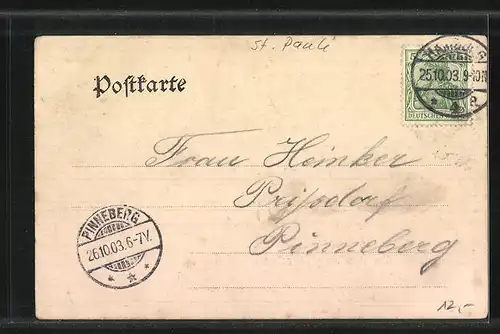 St. Pauli
Postkarte
HAMBURG
25.10.03. 9-10N
* 4 P.
DEUTSCHES
Frau Heinker
Prisdorf
Pinneberg
PINNEBERG
26.10.03. 6-7V.
* * *
12,-